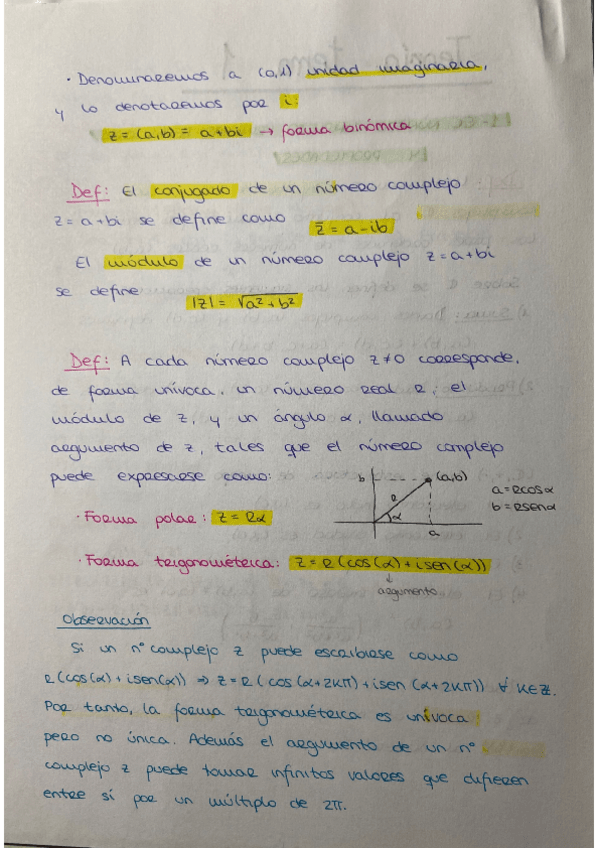 · Denominaremos a (0,1) unidad imaginaria,
y lo denotaremos por i:
z = (a,b) = a+bi → forma binómica
Def: El conjugado de un número complejo
z = a+bi se define como z̄ = a-ib
El módulo de un número complejo z = a+bi
se define |z| = √(a²+b²)
Def: A cada número complejo z≠0 corresponde,
de forma unívoca, un número real R, el
módulo de z, y un ángulo α, llamado
argumento de z, tales que el número complejo
puede expresarse como:
b (a,b)
R α
a
a = Rcosα
b = Rsenα
· Forma polar: z = Rα
· Forma trigonométrica: z = R(cos(α)+isen(α))
↓
argumento
Observación
Si un nº complejo z puede escribirse como
R(cos(α)+isen(α)) ⇒ z = R(cos(α+2kπ)+isen(α+2kπ)) ∀ k∈ℤ.
Por tanto, la forma trigonométrica es unívoca
pero no única. Además el argumento de un nº
complejo z puede tomar infinitos valores que difieren
entre sí por un múltiplo de 2π.